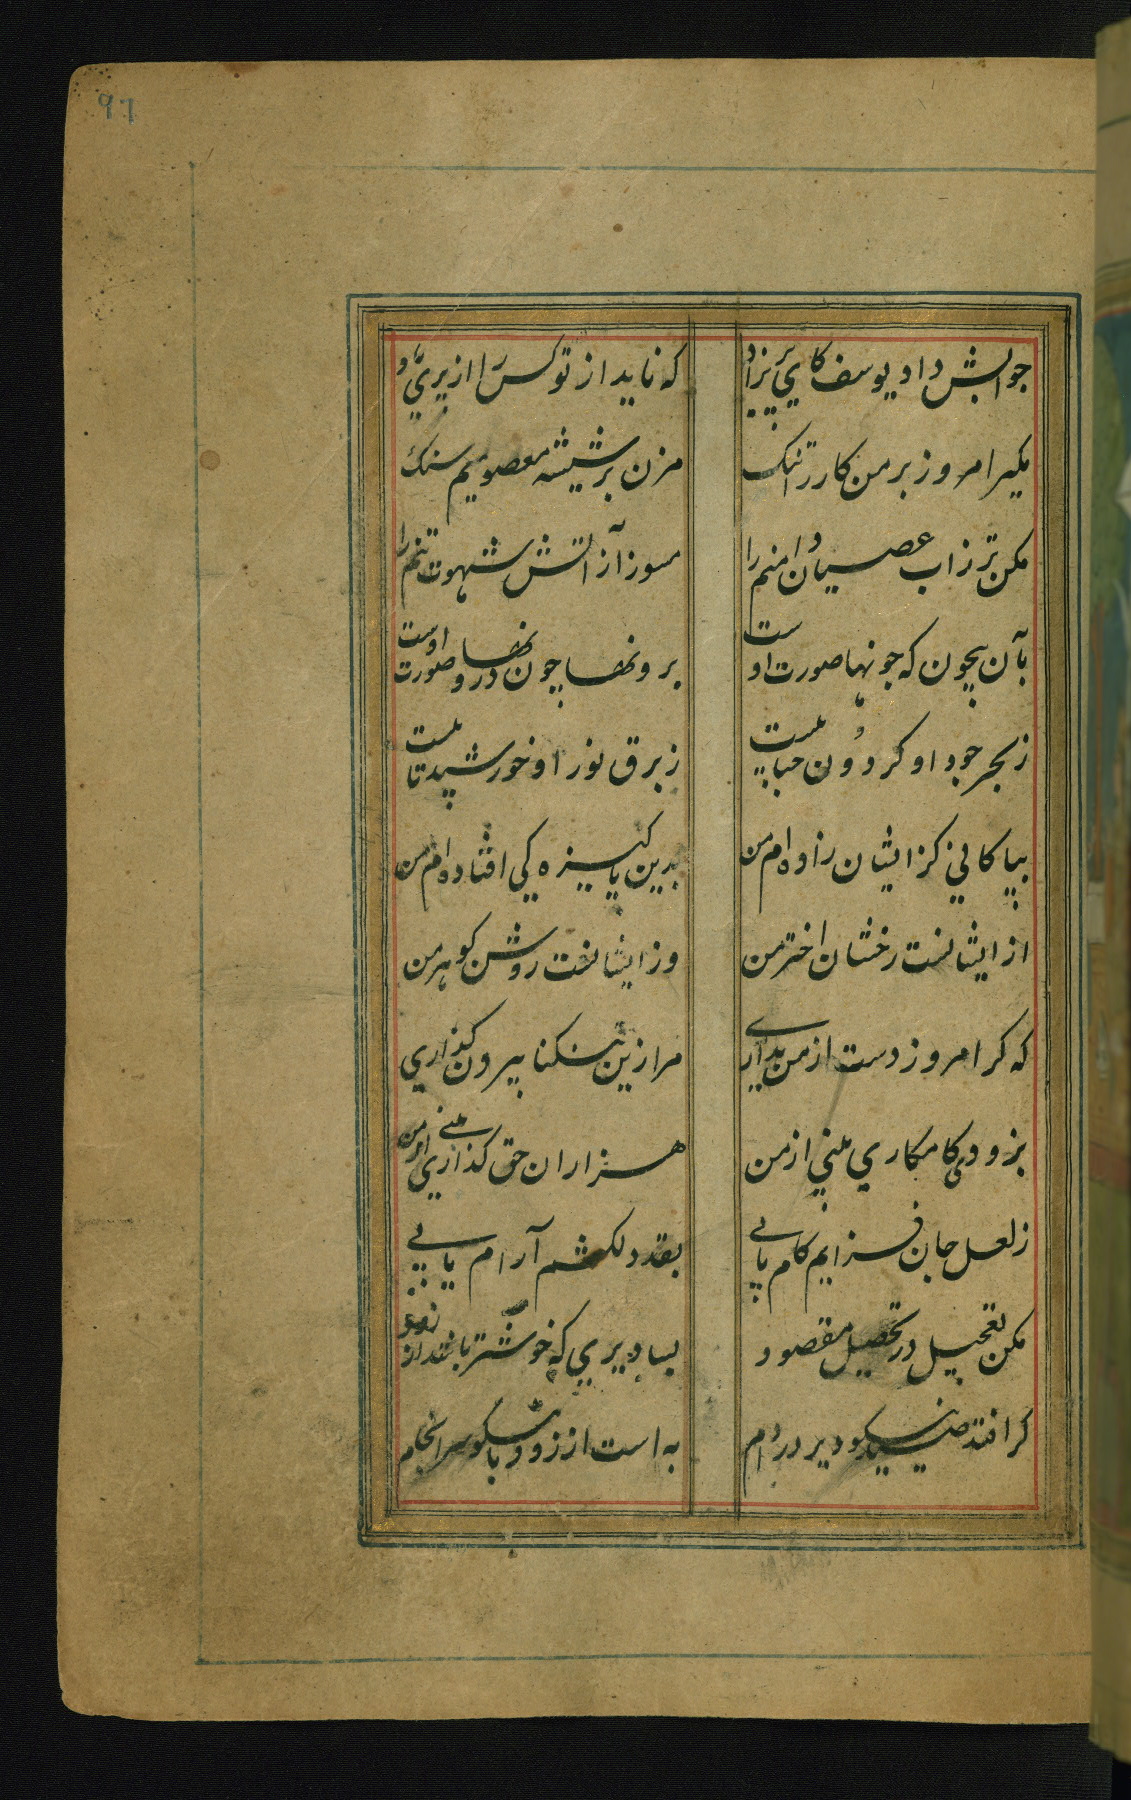 97
جوابش داد یوسف کای پریزاد که ناید از تو کس را از پری یاد
مکیر امروز بر من کار را تنک مزن بر شیشه معصومیم سنک
مکن تر زاب عصیان دامنم را مسوز از آتش شهوت تنم را
بآن بیچون که چونها صورت اوست برونها چون درونها صورت اوست
ز بحر جود او کردون حبابیست ز برق نور او خورشید تابیست
بپاکانی کز ایشان زاده ام من بدین پاکیزه کی افتاده ام من
از ایشانست رخشان اختر من وز ایشانست روشن کوهر من
که کر امروز دست از من بداری مرا زین تنکنا بیرون کذاری
بزودی کامکاری بینی از من هزاران حق کذاری بینی از من
ز لعل جان فزایم کام یابی بقد دلکشم آرام یابی
مکن تعجیل در تحصیل مقصود بسا دیری که خوشتر باشد از زود
کر افتد صید نیکو دیر در دام به است از زود با نیکو سرانجام